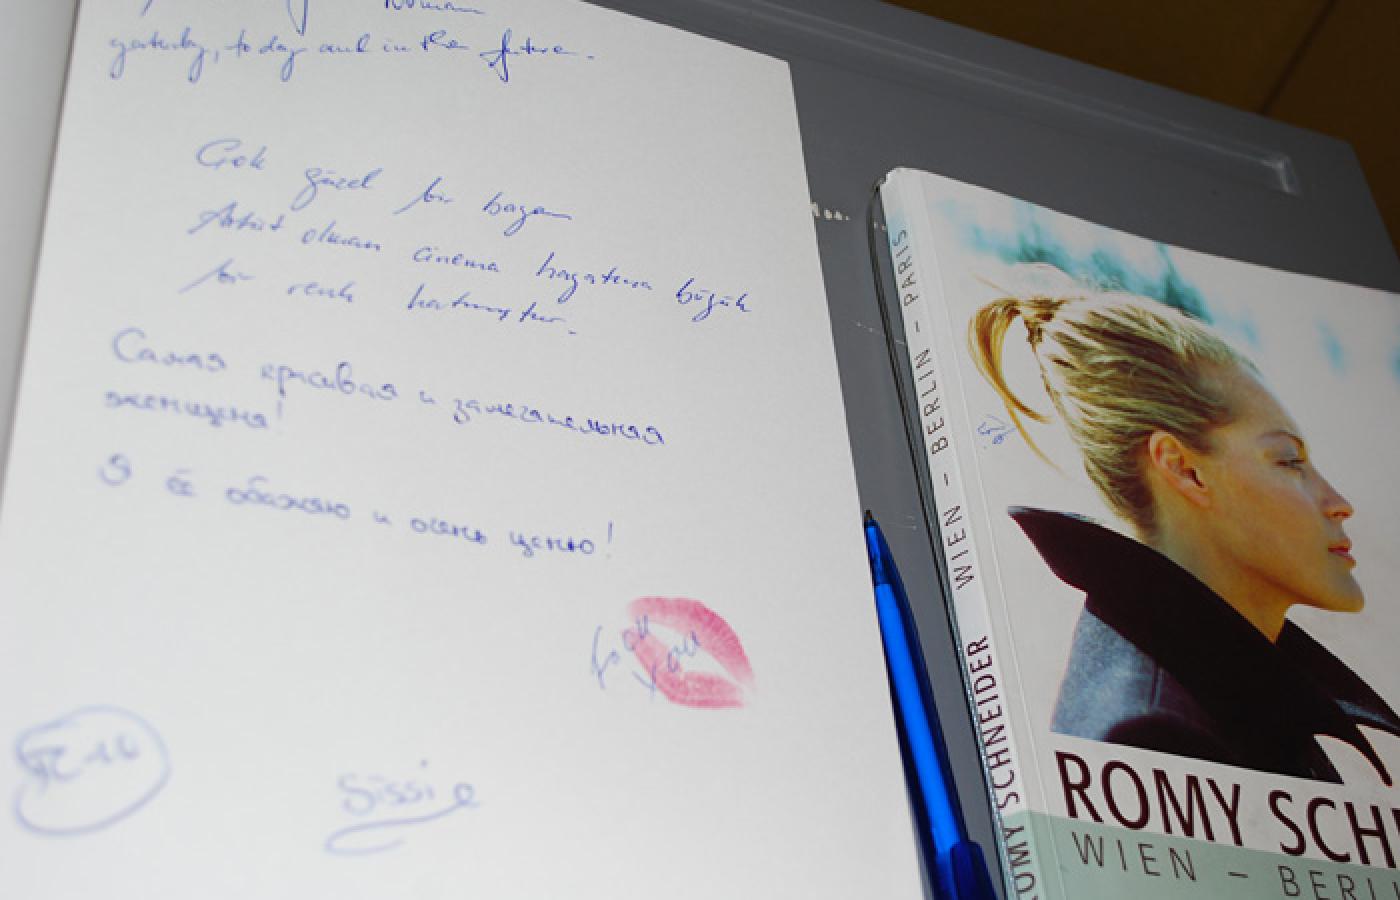 Woman
yesterday, today and in the future.
Çok güzel bir bayan
Artist olman cinema hayatına büyük
bir renk katmıştır.
Самая красивая и замечательная
женщина!
Я её обажаю и очень ценю!
Sissi
WIEN – BERLIN – PARIS
ROMY SCHNEIDER
ROMY SCH
WIEN – BERLI